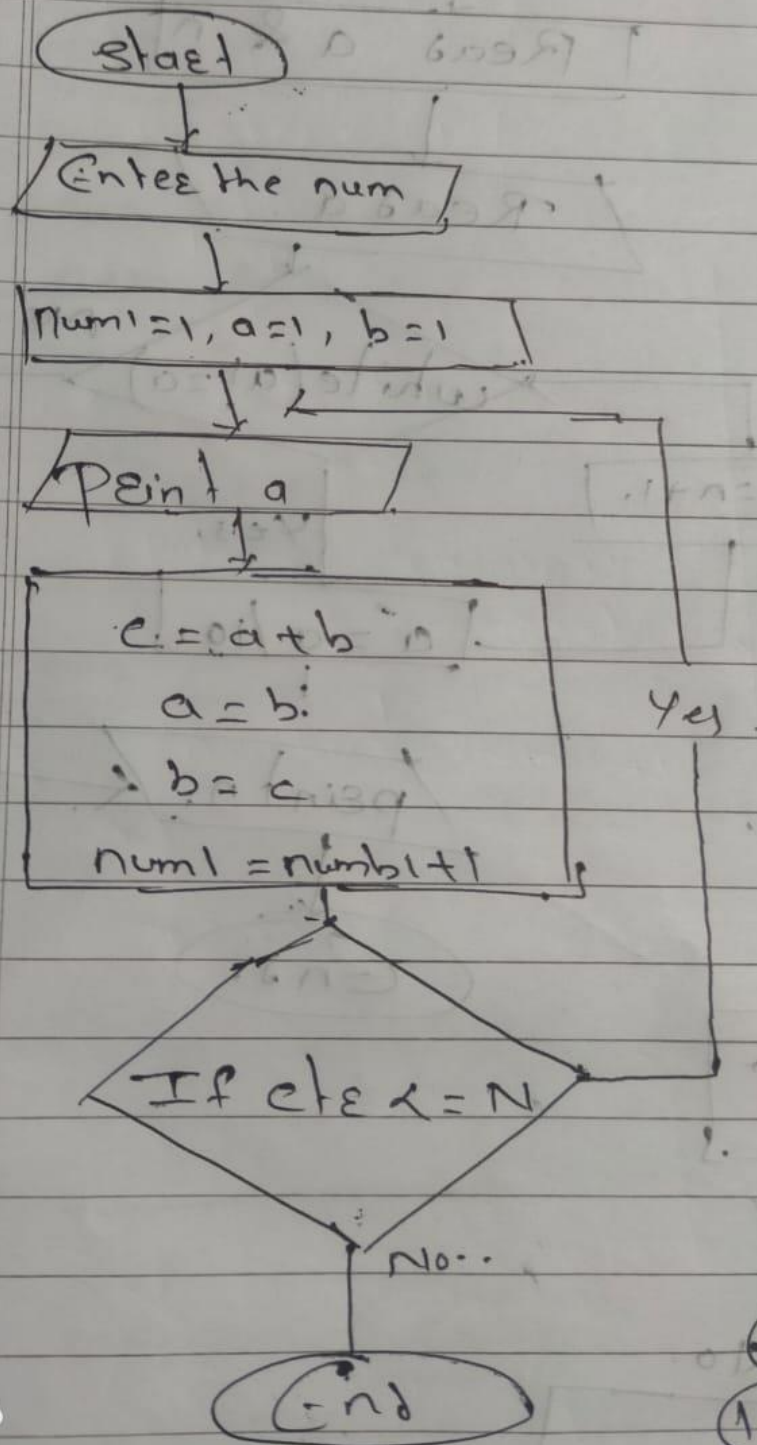 Start
Enter the num
num1=1, a=1, b=1
Print a
c = a + b
a = b
b = c
num1 = numb1+1
Yes
If ctr <= N
No..
End